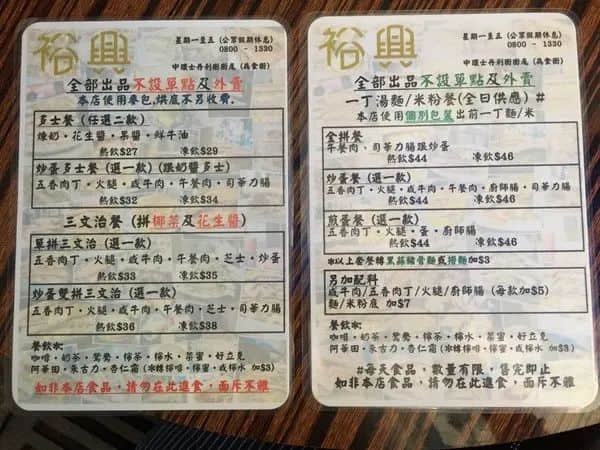 裕興
星期一至五 (公眾假期休息)
0800 - 1330
中環士丹利街街尾 (為食街)
全部出品不設單點及外賣
本店使用麥包,烘底不另收費.
多士餐 (任選二款)
煉奶・花生醬・果醬・鮮牛油
熱飲$27 凍飲$29
炒蛋多士餐 (選一款) (跟奶醬多士)
五香肉丁・火腿・咸牛肉・午餐肉・司華力腸
熱飲$32 凍飲$34
三文治餐 (拼椰菜及花生醬)
單拼三文治 (選一款)
五香肉丁・火腿・咸牛肉・午餐肉・芝士・炒蛋
熱飲$33 凍飲$35
炒蛋雙拼三文治 (選一款)
五香肉丁・火腿・咸牛肉・午餐肉・芝士・司華力腸
熱飲$36 凍飲$38
餐飲:
咖啡・奶茶・鴛鴦・檸茶・檸水・菜蜜・好立克
阿華田・朱古力・杏仁霜 (冰檸檸啡・檸蜜・或檸水 加$3)
如非本店食品,請勿在此進食,面斥不雅
裕興
星期一至五 (公眾假期休息)
0800 - 1330
中環士丹利街街尾 (為食街)
全部出品不設單點及外賣
一丁湯麵/米粉餐(全日供應) #
本店使用個別包裝出前一丁麵/米
全拼餐
午餐肉、司華力腸跟炒蛋
熱飲$44 凍飲$46
炒蛋餐 (選一款)
五香肉丁・火腿・咸牛肉・午餐肉・廚師腸・司華力腸
熱飲$44 凍飲$46
煎蛋餐 (選一款)
五香肉丁・火腿・蛋・廚師腸
熱飲$44 凍飲$46
※以上套餐轉黑蒜豬骨麵或撈麵加$3
另加配料
咸牛肉/五香肉丁/火腿/廚師腸 (每款加$5)
麵/米粉底 加$7
餐飲:
咖啡・奶茶・鴛鴦・檸茶・檸水・菜蜜・好立克
阿華田・朱古力・杏仁霜 (冰檸檸啡・檸蜜・或檸水 加$3)
#每天食品,數量有限,售完即止
如非本店食品,請勿在此進食,面斥不雅